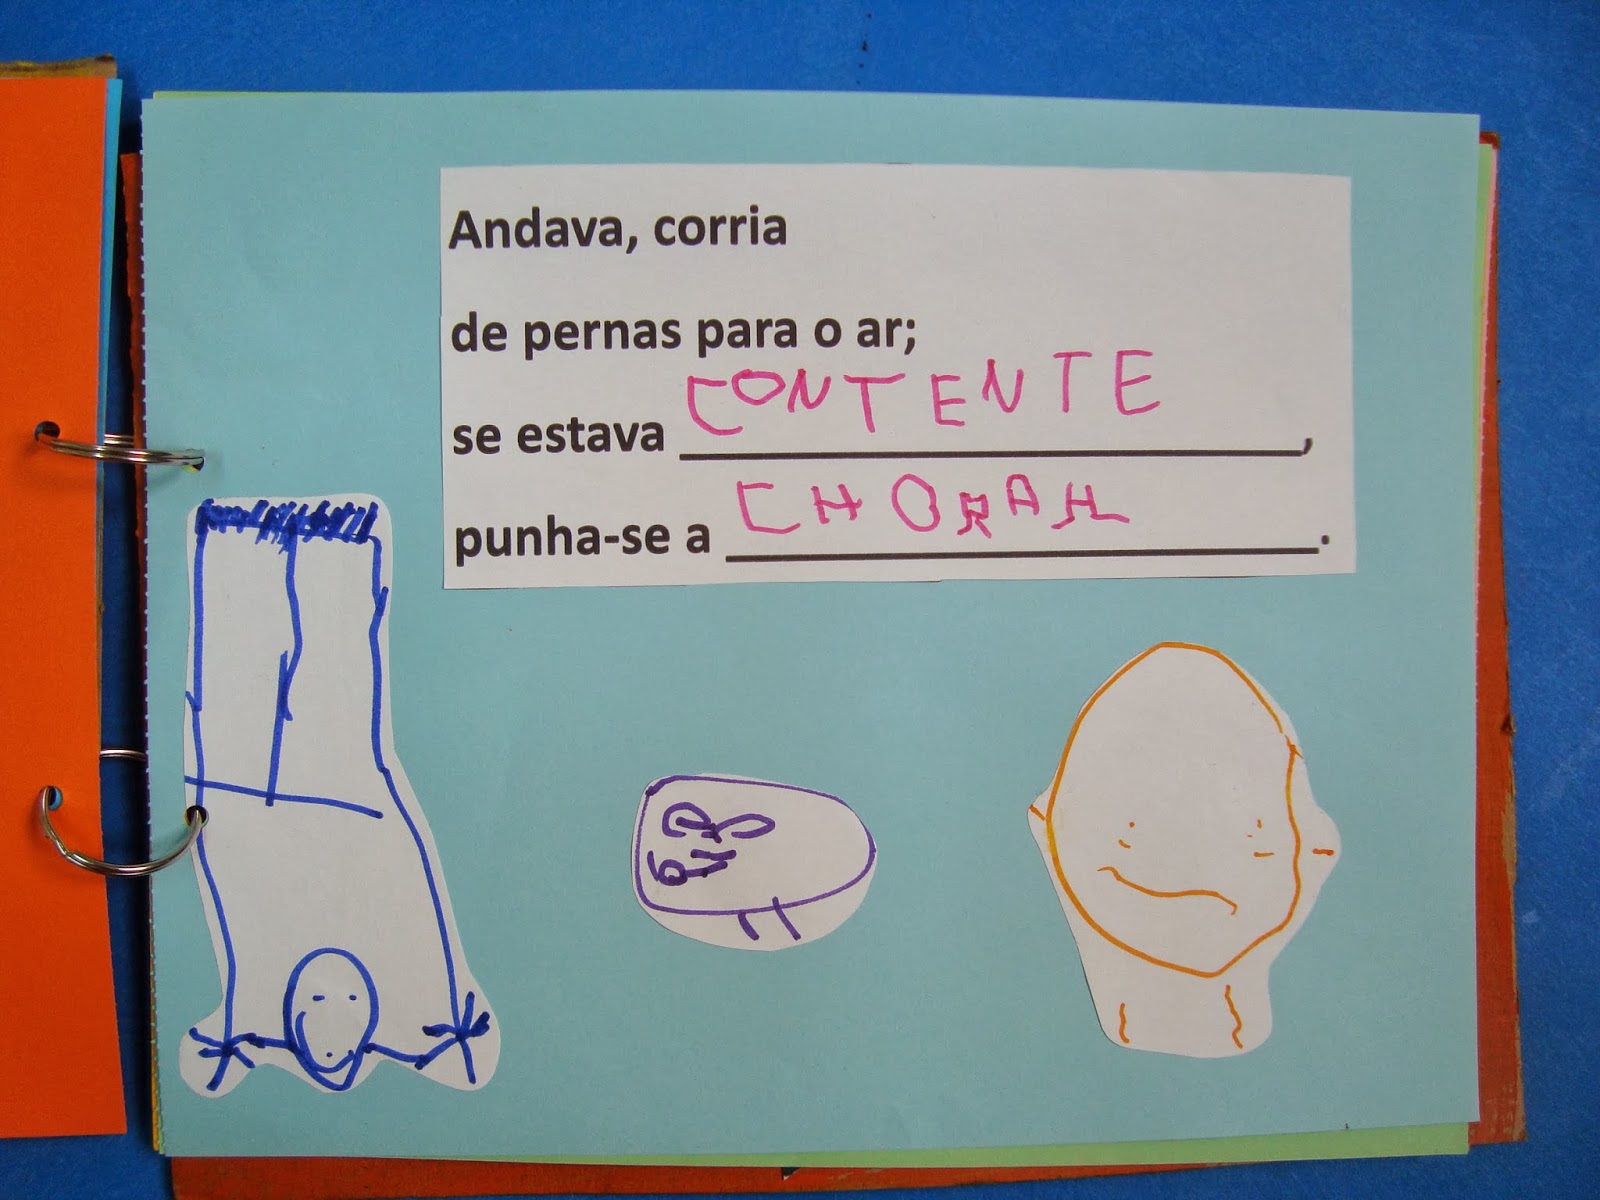 Andava, corria
de pernas para o ar;
se estava CONTENTE,
punha-se a CHORAR.